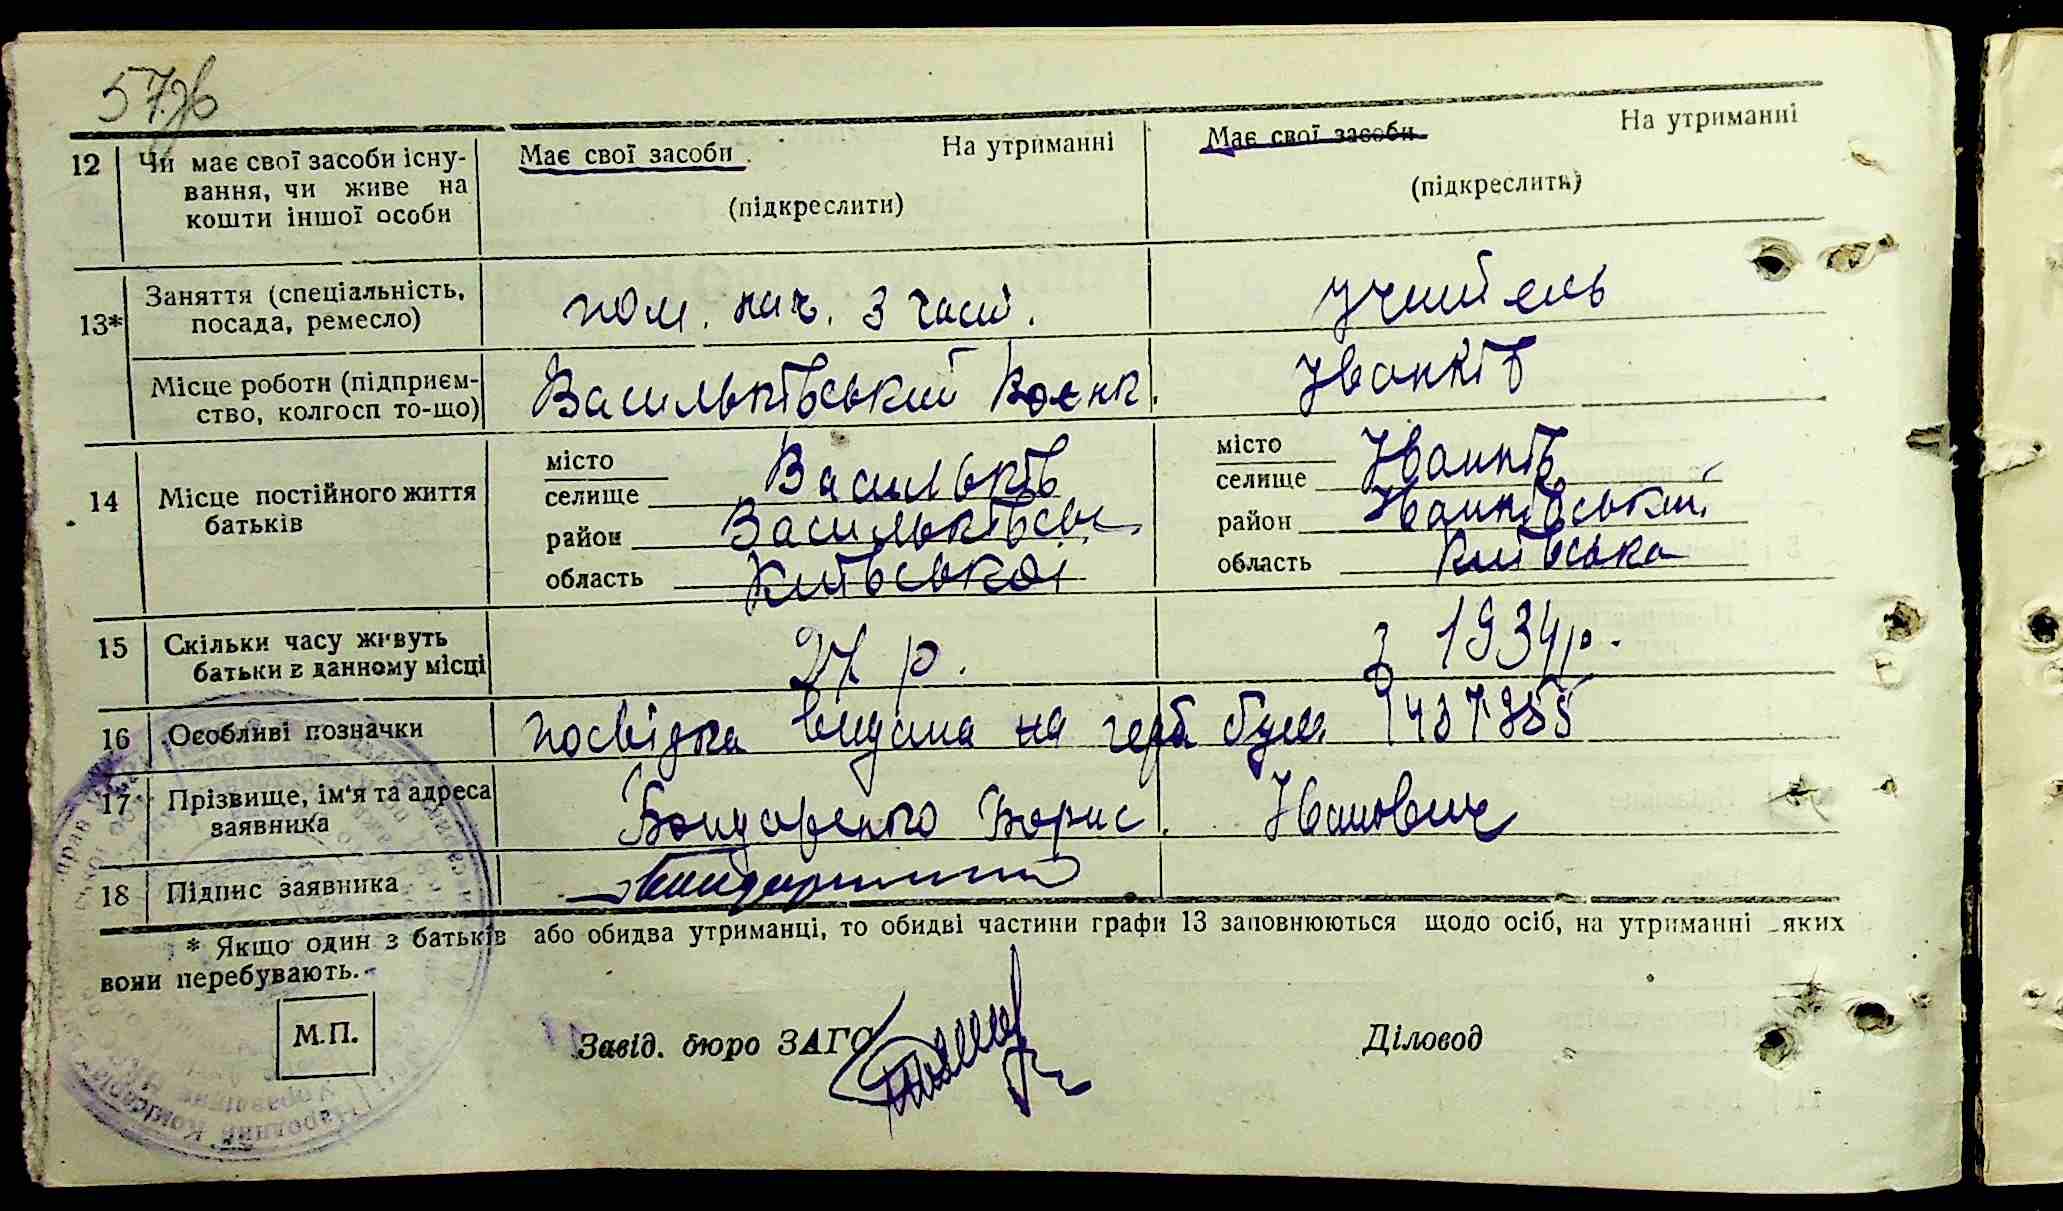 57зв
12 Чи має свої засоби існу- Має свої засоби На утриманні Має свої засоби На утриманні
вання, чи живе на
кошти іншої особи (підкреслити) (підкреслити)
13* Заняття (спеціальність, пом. нач. 3 част. учитель
посада, ремесло)
Місце роботи (підприєм- Васильківський Воєнк. Іванків
ство, колгосп то-що)
14 Місце постійного життя батьків
місто Васильків місто Іванків
селище селище
район Васильківськ район Іванківський
область Київської область Київська
15 Скільки часу живуть 27 р. з 1934 р.
батьки в данному місці
16 Особливі позначки посвідка видана на герб бум.
17 Прізвище, ім'я та адреса Бондаренко Борис Іванович
заявника
18 Підпис заявника
* Якщо один з батьків або обидва утриманці, то обидві частини графи 13 заповнюються щодо осіб, на утриманні яких
вони перебувають.
М.П. Завід. бюро ЗАГС Діловод